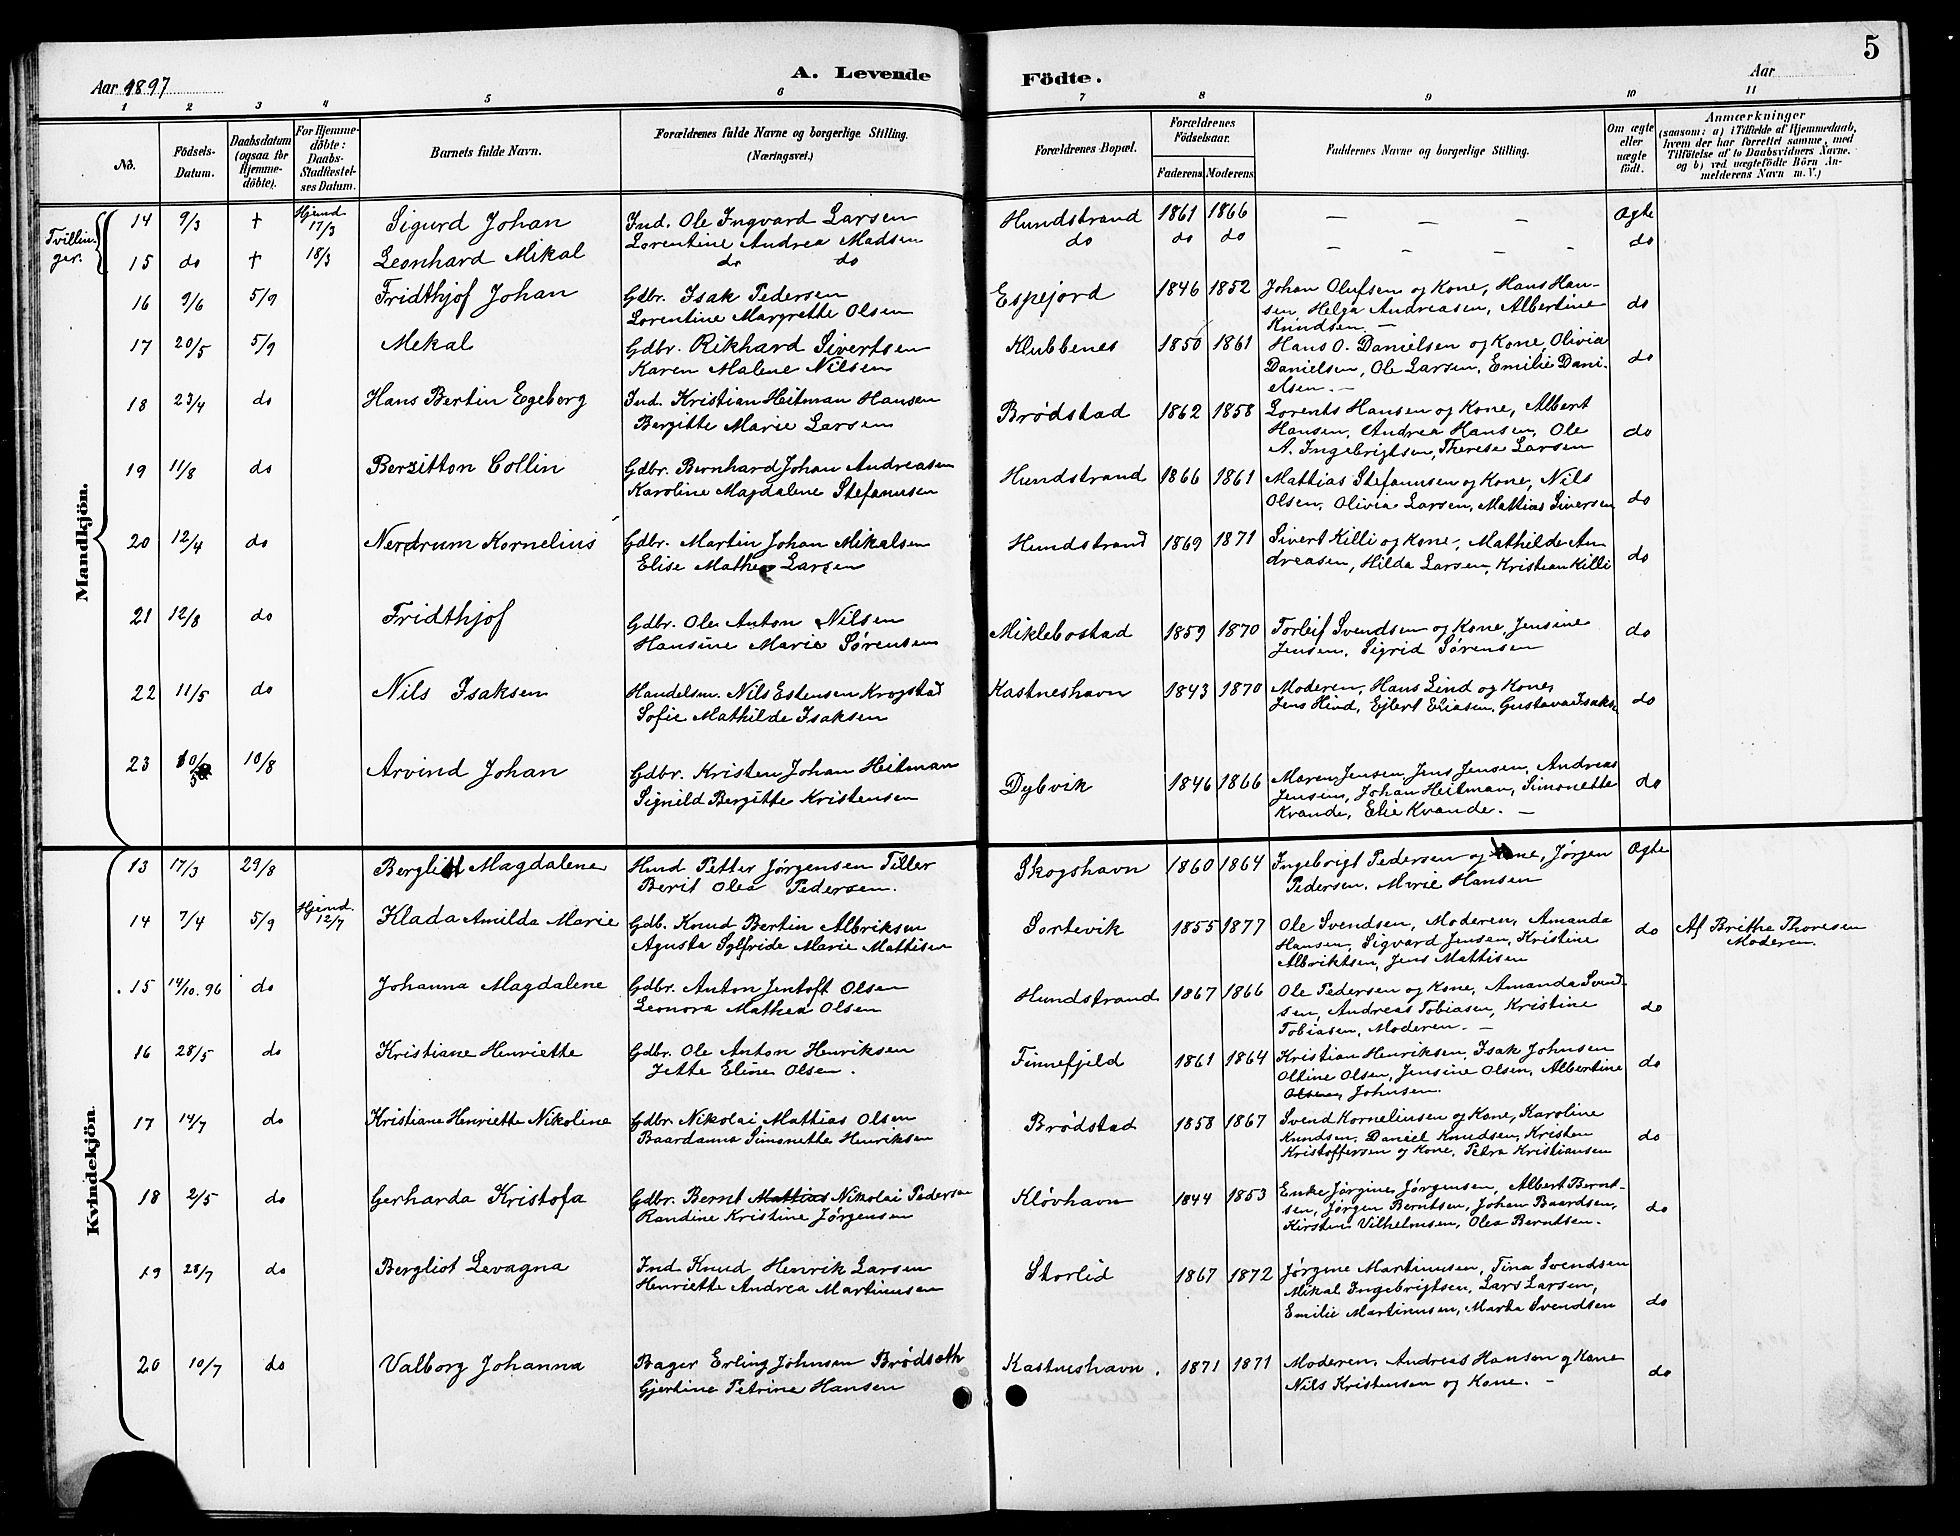 5
Aar 1897
A. Levende Födte.
Aar
1 2 3 4 5 6 7 8 9 10 11
No.
Födsels-Datum.
Daabsdatum (ogsaa for Hjemme-döbte).
For Hjemme-döbte: Daabs-Stadfæstel-ses Datum.
Barnets fulde Navn.
Forældrenes fulde Navne og borgerlige Stilling. (Næringsvei.)
Forældrenes Bopæl.
Forældrenes Födselsaar.
Faderens Moderens
Faddernes Navne og borgerlige Stilling.
Om ægte eller uægte födt.
Anmærkninger
(saasom: a) i Tilfælde af Hjemmedaab, hvem der har forrettet samme, med Tilföielse af to Daabsvidners Navne, og b) ved uægtefödte Börn An-melderens Navn m. V.)
Mandkjön.
Tvillin-ger.
14 9/3 + Hjemd 17/3 Sigurd Johan Ind. Ole Ingvard Larsen Hundstrand 1861 1866 — — — Ægte
Lorentine Andrea Madsen
15 do + 18/3 Leonhard Mikal do do do do do - - - - do
16 9/6 5/9 Fridthjof Johan Gdbr. Isak Pedersen Espejord 1846 1852 Johan Olufsen og Kone, Hans Han-
Lorentine Margrette Olsen sen, Helga Andreasen, Albertine do
Knudsen. —
17 20/5 5/9 Mekal Gdbr. Rikhard Sivertsen Klubbenes 1850 1861 Hans O. Danielsen og Kone, Olivia
Karen Malene Nilsen Danielsen, Ole Larsen, Emilie Dani- do
elsen. —
18 23/4 do Hans Bertin Egeberg Ind. Kristian Heitman Hansen Brödstad 1862 1858 Lorents Hansen og Kone, Albert
Bergitte Marie Larsen Hansen, Andrea Hansen, Ole do
A. Ingebrigtsen, Therese Larsen
19 11/8 do Berzitton Collin Gdbr. Bernhard Johan Andreasen Hundstrand 1866 1861 Mattias Stefanusen og Kone, Nils
Karoline Magdalene Stefanusen Olsen, Olivia Larsen, Mattias Siversen do
20 12/4 do Nerdrum Kornelius Gdbr. Martin Johan Mikalsen Hundstrand 1869 1871 Sivert Killi og Kone, Mathilde An
Elise Mathea Larsen dreasen, Hilda Larsen, Kristian Killi do
21 12/8 do Fridthjof Gdbr. Ole Anton Nilsen Miklebostad 1859 1870 Torleif Svendsen og Kone, Jensine do
Hansine Marie Sørensen Jensen, Sigrid Sørensen
22 11/5 do Nils Isaksen Handelsm. Nils Estensen Krogstad Kastneshavn 1843 1870 Moderen, Hans Lind og Kone,
Sofie Mathilde Isaksen Jens Hind, Ejlert Eliasen, Gustava Isaks. do
23 10/5 10/8 Arvind Johan Gdbr. Kristen Johan Heitman Dybvik 1846 1866 Maren Jensen, Jens Jensen, Andreas
Signild Bergitte Kristensen Jensen, Johan Heitman, Simonette do
Kvande, Elie Kvande. —
Kvindekjön.
13 17/3 29/8 Bergliot Magdalene Hmd Petter Jørgensen Tiller Skogshavn 1860 1864 Ingebrigt Pedersen og Kone, Jørgen Ægte
Berit Olea Pedersen. Pedersen, Marie Hansen
14 7/4 5/9 Hjemd. 12/7 Klada Amilda Marie Gdb. Knud Bertin Albriksen Sortevik 1855 1877 Ole Svendsen, Moderen, Amanda do Af Brithe Thoresen
Agusta Sylfride Marie Mattisen Hansen, Sigvard Jensen, Kristine Moderen.
Albriktsen, Jens Mattisen
15 14/10.96 do Johanna Magdalene Gdbr. Anton Jentoft Olsen Hundstrand 1867 1866 Ole Pedersen og Kone, Amanda Svend-
Leonora Mathea Olsen sen, Andreas Tobiasen, Kristine do
Tobiasen, Moderen. —
16 28/5 do Kristiane Henriette Gdbr. Ole Anton Henriksen Finnefjeld 1861 1864 Kristian Henriksen, Isak Johnsen
Jette Eline Olsen. Oltine Olsen, Jensine Olsen, Albertine do
Olsen, Johnsen.
17 14/7 do Kristiane Henriette Nikoline Gdbr. Nikolai Mattias Olsen Brödstad 1858 1867 Svend Korneliusen og Kone, Karoline
Baardanna Simonette Henriksen Knudsen, Daniel Knudsen, Kristen do
Kristoffersen og Kone, Petra Kristiansen
18 2/5 do Gerharda Kristofa Gdbr. Bernt Mattias Nikolai Pedersen Kløvhavn 1844 1853 Enke Jørgine Jørgensen, Albert Bernt-
Randine Kristine Jørgensen sen, Jørgen Berntsen, Johan Baardsen, do
Kirsten Vilhelmsen, Olea Berntsen.
19 28/7 do Bergliot Levagna Ind Knud Henrik Larsen Storlid 1867 1872 Jørgine Martinusen, Tina Svendsen
Henriette Andrea Martinusen Mikal Ingebrigtsen, Lars Larsen,
Emilie Martinusen, Marta Svendsen do
20 10/7 do Valborg Johanna Bager Erling Johnsen Brödseth Kastneshavn. 1871 1871 Moderen, Andreas Hansen og Kone
Gjertine Petrine Hansen Nils Kristensen og Kone. — do